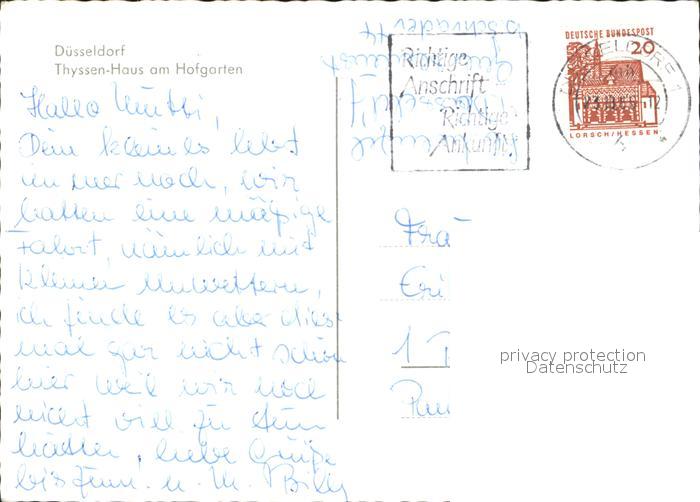 Düsseldorf
Thyssen-Haus am Hofgarten
DEUTSCHE BUNDESPOST
20
LORSCH/HESSEN
Richtige
Anschrift
Richtige
Ankunft!
Hallo Mutti,
Dein kleines lebt
immer noch, wir
hatten eine mäßige
Fahrt, nämlich mit
kleinen Unwettern,
ich finde es aber dies
mal gar nicht schön
hier weil wir noch
nicht viel zu tun
hatten, liebe Grüße
bis zum
Billy
Frä
Eri
1
privacy protection
Datenschutz